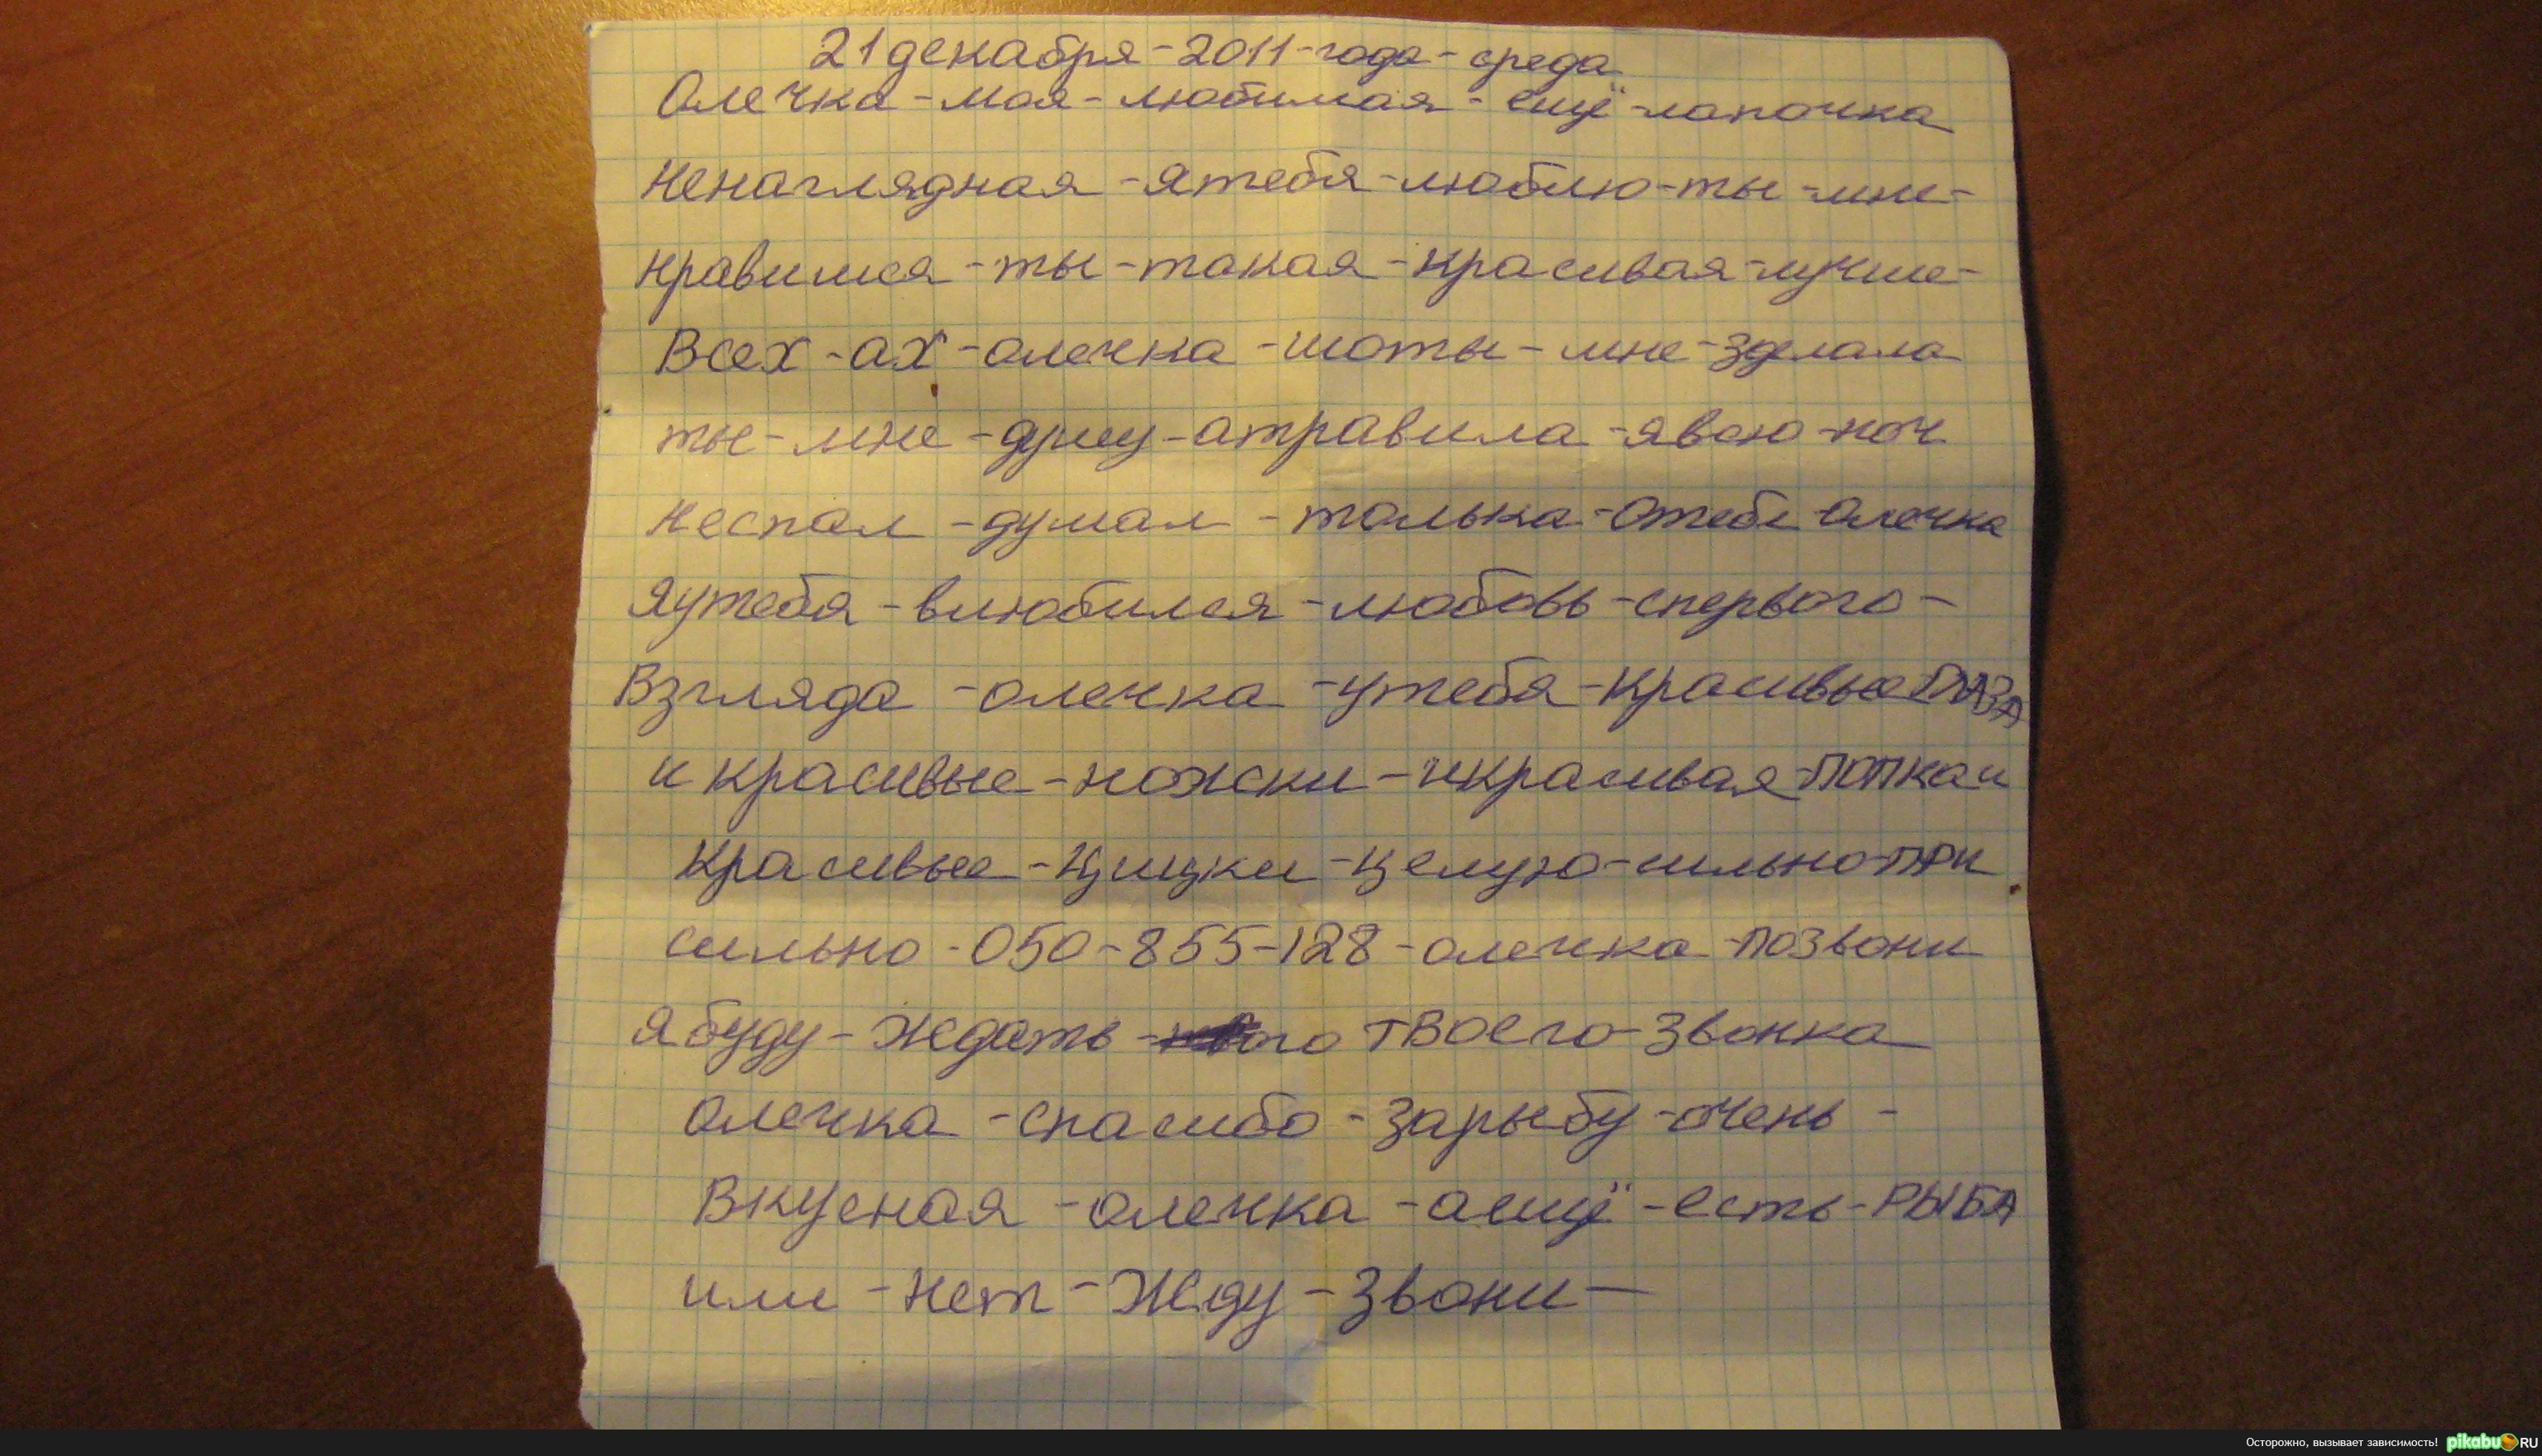 21 декабря - 2011 - года - среда
Олечка - моя - любимая - ещё - лапочка
Ненаглядная - ятебя - люблю - ты - мне -
нравишся - ты - такая - красивая - лучше -
Всех - ах - олечка - шоты - мне - зделала
ты - мне - душу - атравила - явсю - ноч
неспал - думал - толька - отебе олечка
яутебя - влюбился - любовь - спервого -
Взгляда - олечка - утебя - красивые ГЛАЗА
и красивые - ножки - икрасивая - попка и
красивые - цицки - целую - сильно - при
сильно - 050 - 855 - 128 - олечка - позвони
я буду - ждать - твоего - звонка
олечка - спасибо - зарыбу - очень -
Вкусная - олечка - аещё - есть - РЫБА
или - нет - Жду - звони -
Осторожно, вызывает зависимость! pikabu.RU